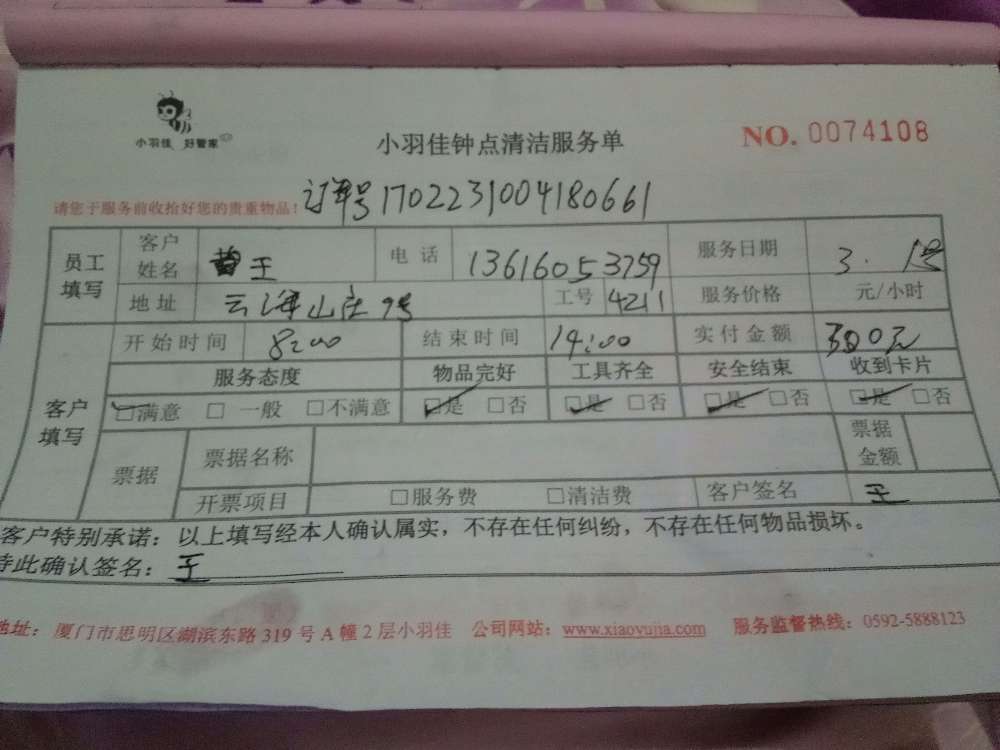 小羽佳 好管家
小羽佳钟点清洁服务单
NO. 0074108
请您于服务前收拾好您的贵重物品！
订单号1702231004180661
员工填写 客户姓名 王 电话 13616053759 服务日期 3.1号
地址 云海山庄9号 工号 4211 服务价格 元/小时
客户填写 开始时间 8:00 结束时间 14:00 实付金额 300元
服务态度 物品完好 工具齐全 安全结束 收到卡片
☑满意 □一般 □不满意 ☑是 □否 ☑是 □否 ☑是 □否 ☑是 □否
票据 票据名称 票据金额
开票项目 □服务费 □清洁费 客户签名 王
客户特别承诺：以上填写经本人确认属实，不存在任何纠纷，不存在任何物品损坏。
特此确认签名：王
地址：厦门市思明区湖滨东路 319 号 A 幢 2 层小羽佳 公司网站：www.xiaoyujia.com 服务监督热线：0592-5888123